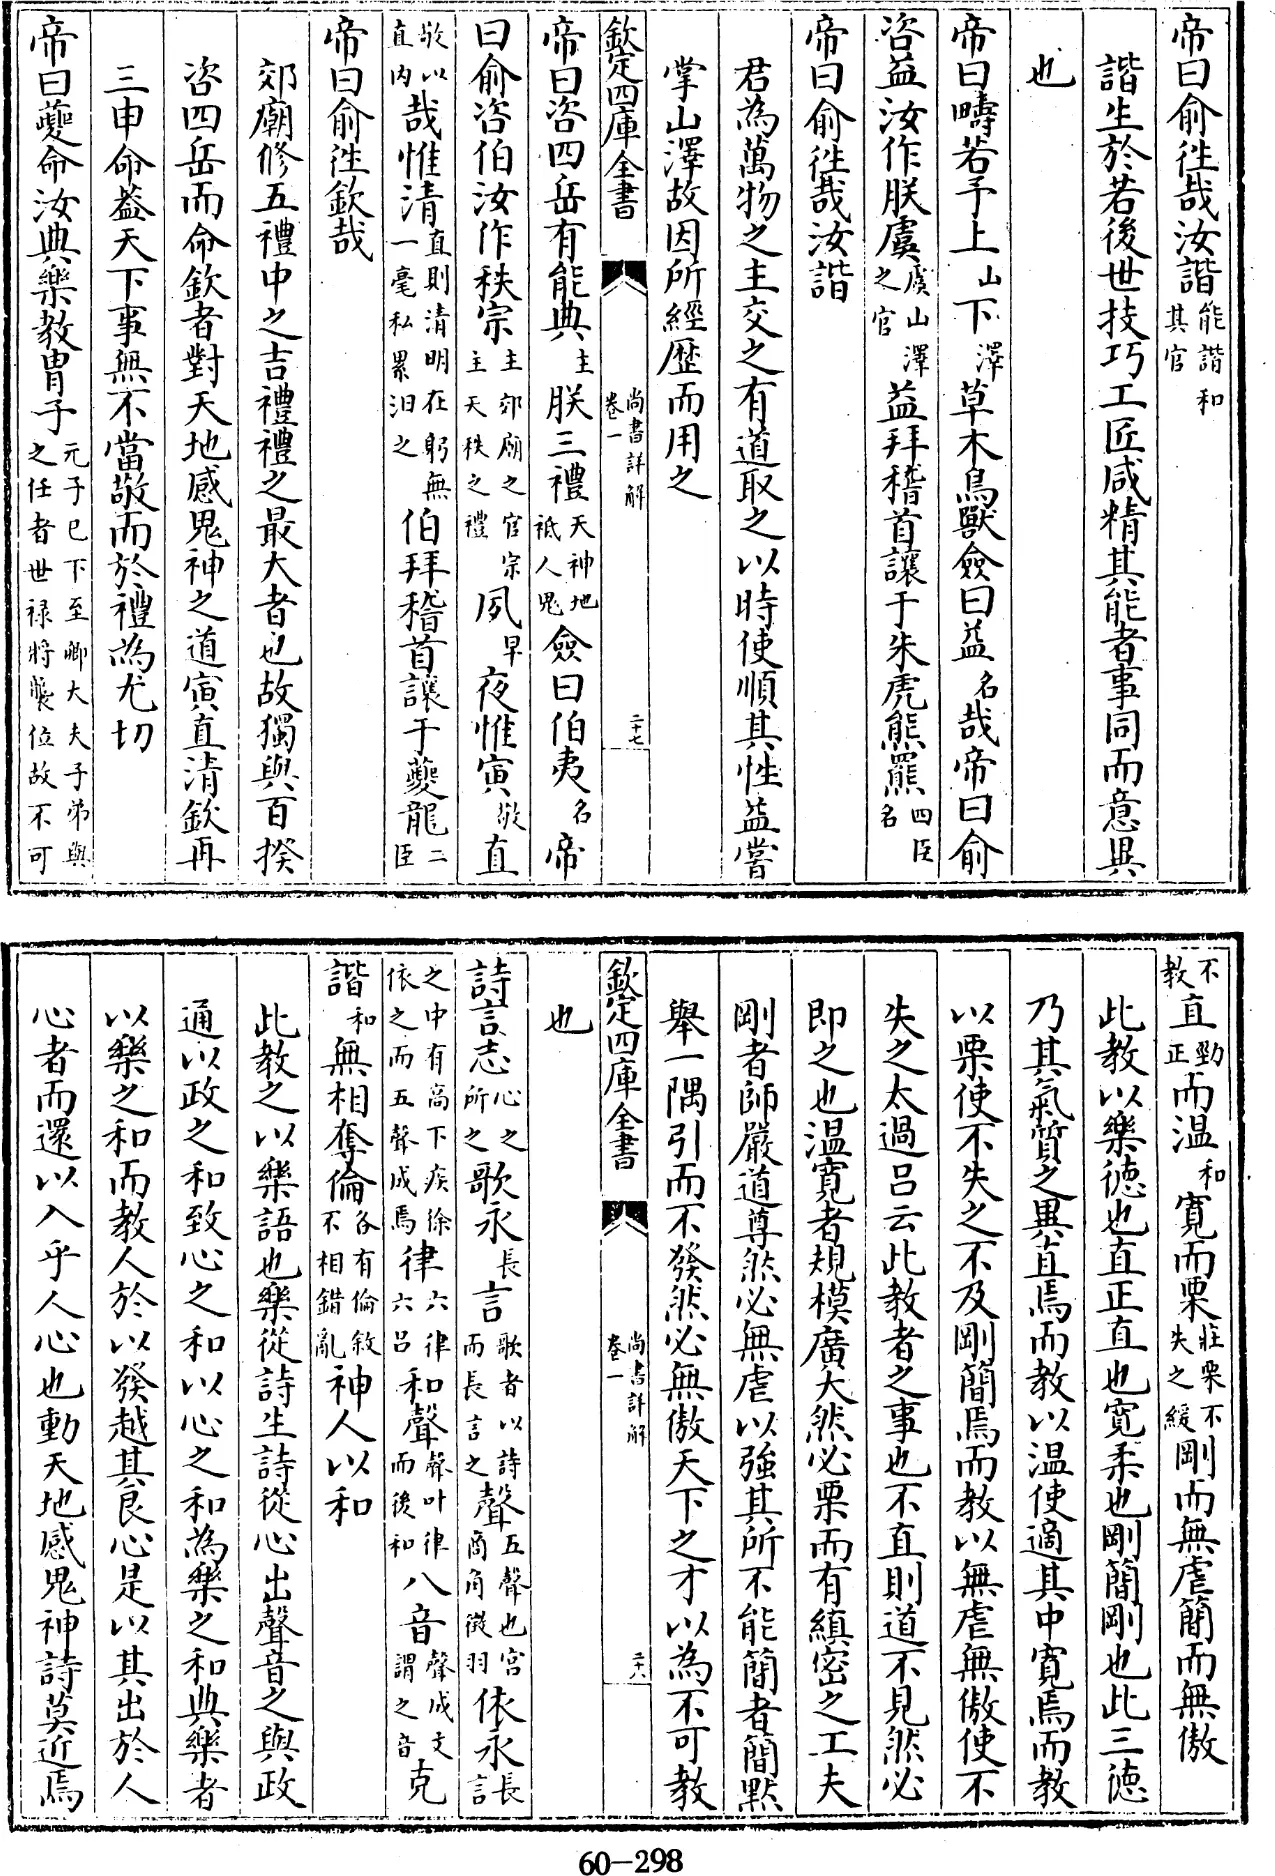 帝曰俞徃哉汝諧能諧和其官
諧生於若後世技巧工匠咸精其能者事同而意異
也
帝曰疇若予上山下澤草木鳥獸僉曰益名哉帝曰俞
咨益汝作朕虞虞山澤之官益拜稽首讓于朱虎熊羆四臣名
帝曰俞徃哉汝諧
君為萬物之主交之有道取之以時使順其性益嘗
掌山澤故因所經歴而用之
欽定四庫全書 尚書詳解卷一 二十七
帝曰咨四岳有能典主朕三禮天神地祗人鬼僉曰伯夷名帝
曰俞咨伯汝作秩宗主郊廟之官宗主天秩之禮夙早夜惟寅敬直
敬以直内哉惟清直則清明在躬無一毫私累汨之伯拜稽首讓于夔龍二臣
帝曰俞徃欽哉
郊廟修五禮中之吉禮禮之最大者也故獨與百揆
咨四岳而命欽者對天地感鬼神之道寅直清欽再
三申命葢天下事無不當敬而於禮為尤切
帝曰夔命汝典樂教胄子元子已下至卿大夫子弟與之任者世禄將襲位故不可
不教直勁正而温和寛而栗莊栗不失之緩剛而無虐簡而無傲
此教以樂徳也直正直也寛柔也剛簡剛也此三徳
乃其氣質之異直焉而教以温使適其中寛焉而教
以栗使不失之不及剛簡焉而教以無虐無傲使不
失之太過吕云此教者之事也不直則道不見然必
即之也温寛者規模廣大然必栗而有縝密之工夫
剛者師嚴道尊然必無虐以強其所不能簡者簡黙
舉一隅引而不發然必無傲天下之才以為不可教
欽定四庫全書 尚書詳解卷一 二十八
也
詩言志心之所之歌永長言歌者以詩而長言之聲五聲也宫商角徵羽依永長言
之中有高下疾徐依之而五聲成焉律六律六吕和聲聲叶律而後和八音聲成文謂之音克
諧和無相奪倫各有倫敘不相錯亂神人以和
此教之以樂語也樂從詩生詩從心出聲音之與政
通以政之和致心之和以心之和為樂之和典樂者
以樂之和而教人於以發越其良心是以其出於人
心者而還以入乎人心也動天地感鬼神詩莫近焉
60-298